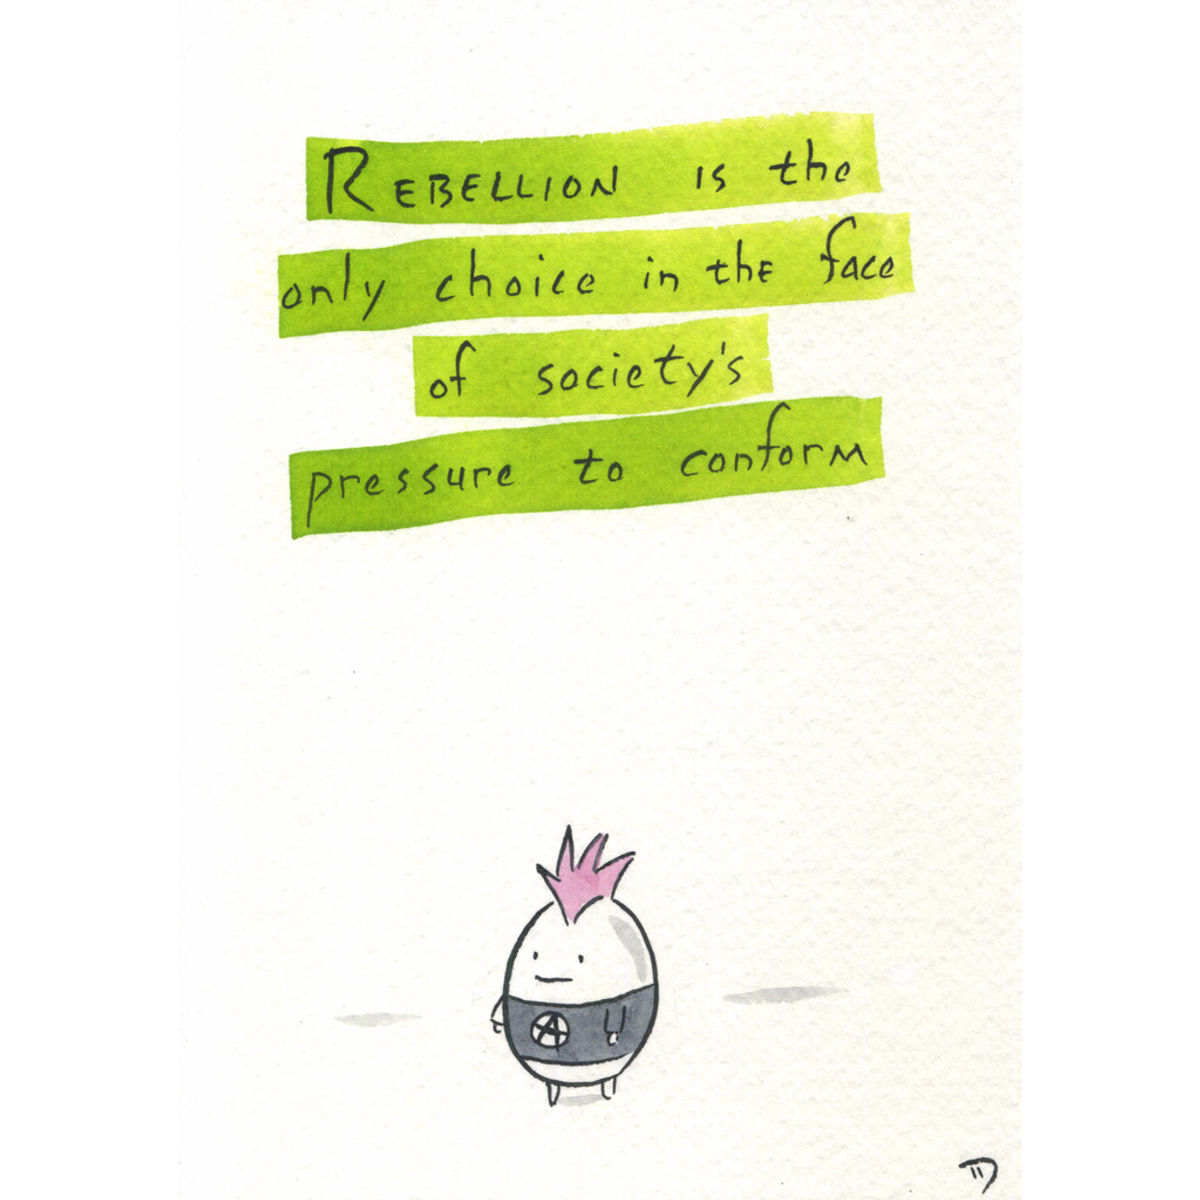 REBELLION is the
only choice in the face
of society's
pressure to conform
A